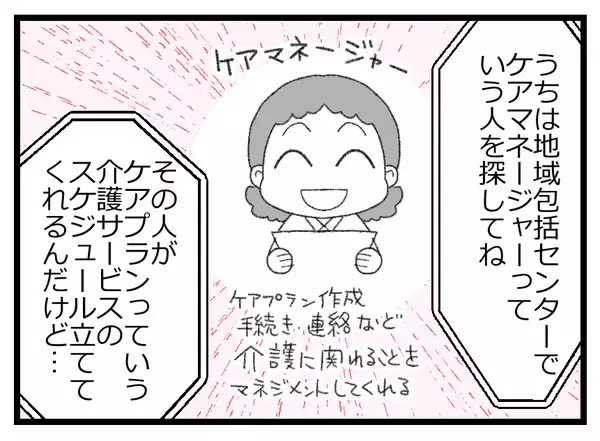 うちは地域包括センターで
ケアマネージャーって
いう人を探してね
ケアマネージャー
ケアプラン作成
手続き・連絡など
介護に関わることを
マネジメントしてくれる
その人が
ケアプランっていう
介護サービスの
スケジュール立てて
くれるんだけど…